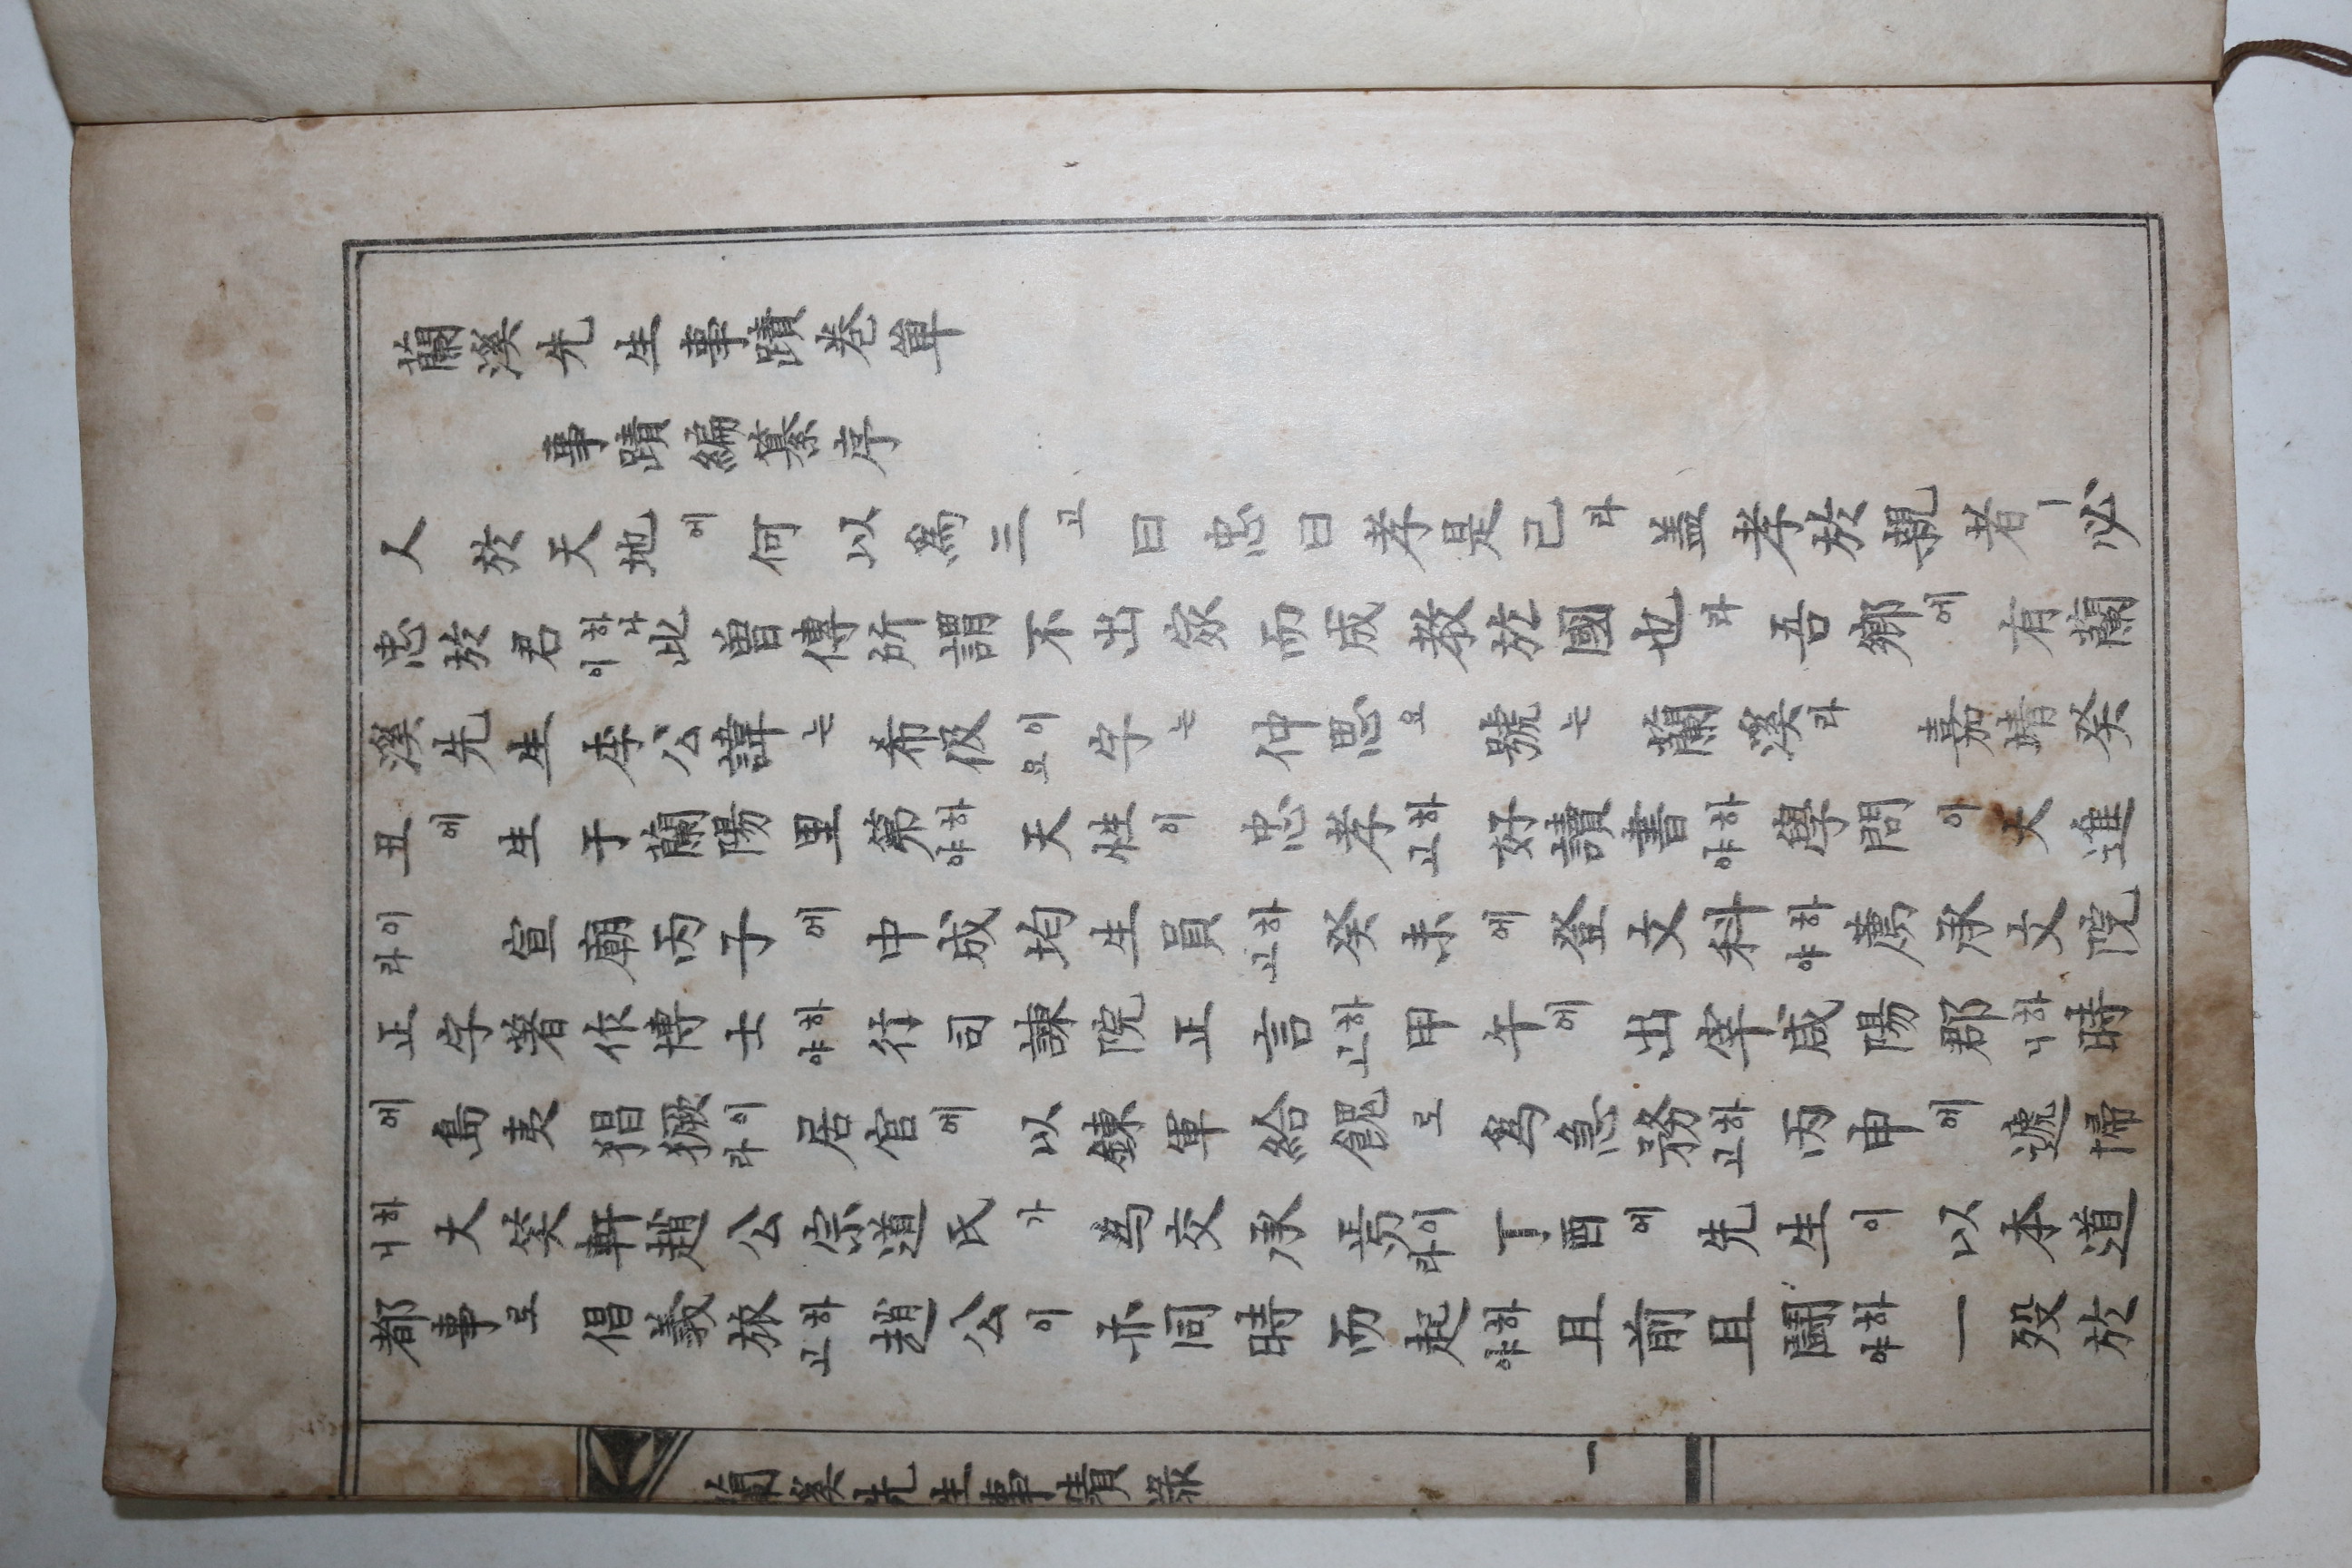 蘭溪先生事蹟卷單
事蹟編纂序
人於天地에何以爲三고曰忠曰孝是已라盖孝於親者ㅣ必
忠於君하나이此曾傳所謂不出家而成教於國也라吾鄉에有蘭
溪先生李公諱는希伋이요字는仲思요號는蘭溪라嘉靖癸
丑에生于蘭陽里第하야天性이忠孝하고好讀書하야學問이大進
이라宣廟丙子에中成均生員하고癸未에登文科하야薦承文院
正字著作博士하야行司諫院正言하고甲午에出宰咸陽郡하니時
에島夷猖獗이라居官에以鍊軍給餽로爲急務하고丙申에遞歸
하니大笑軒趙公宗道氏가為交承焉이라丁酉에先生이以本道
都事로倡義旅하고趙公이亦同時而起하야且前且鬪하야一歿於
蘭溪先生事蹟錄
一